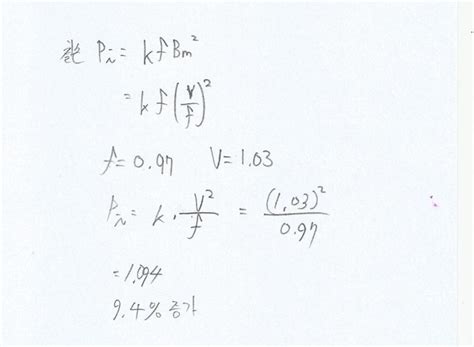 P_i = k f B_m^2
= k f (V/f)^2
f = 0.97   V = 1.03
P_i = k · V^2/f = (1,03)^2/0.97
= 1.094
9.4% 증가